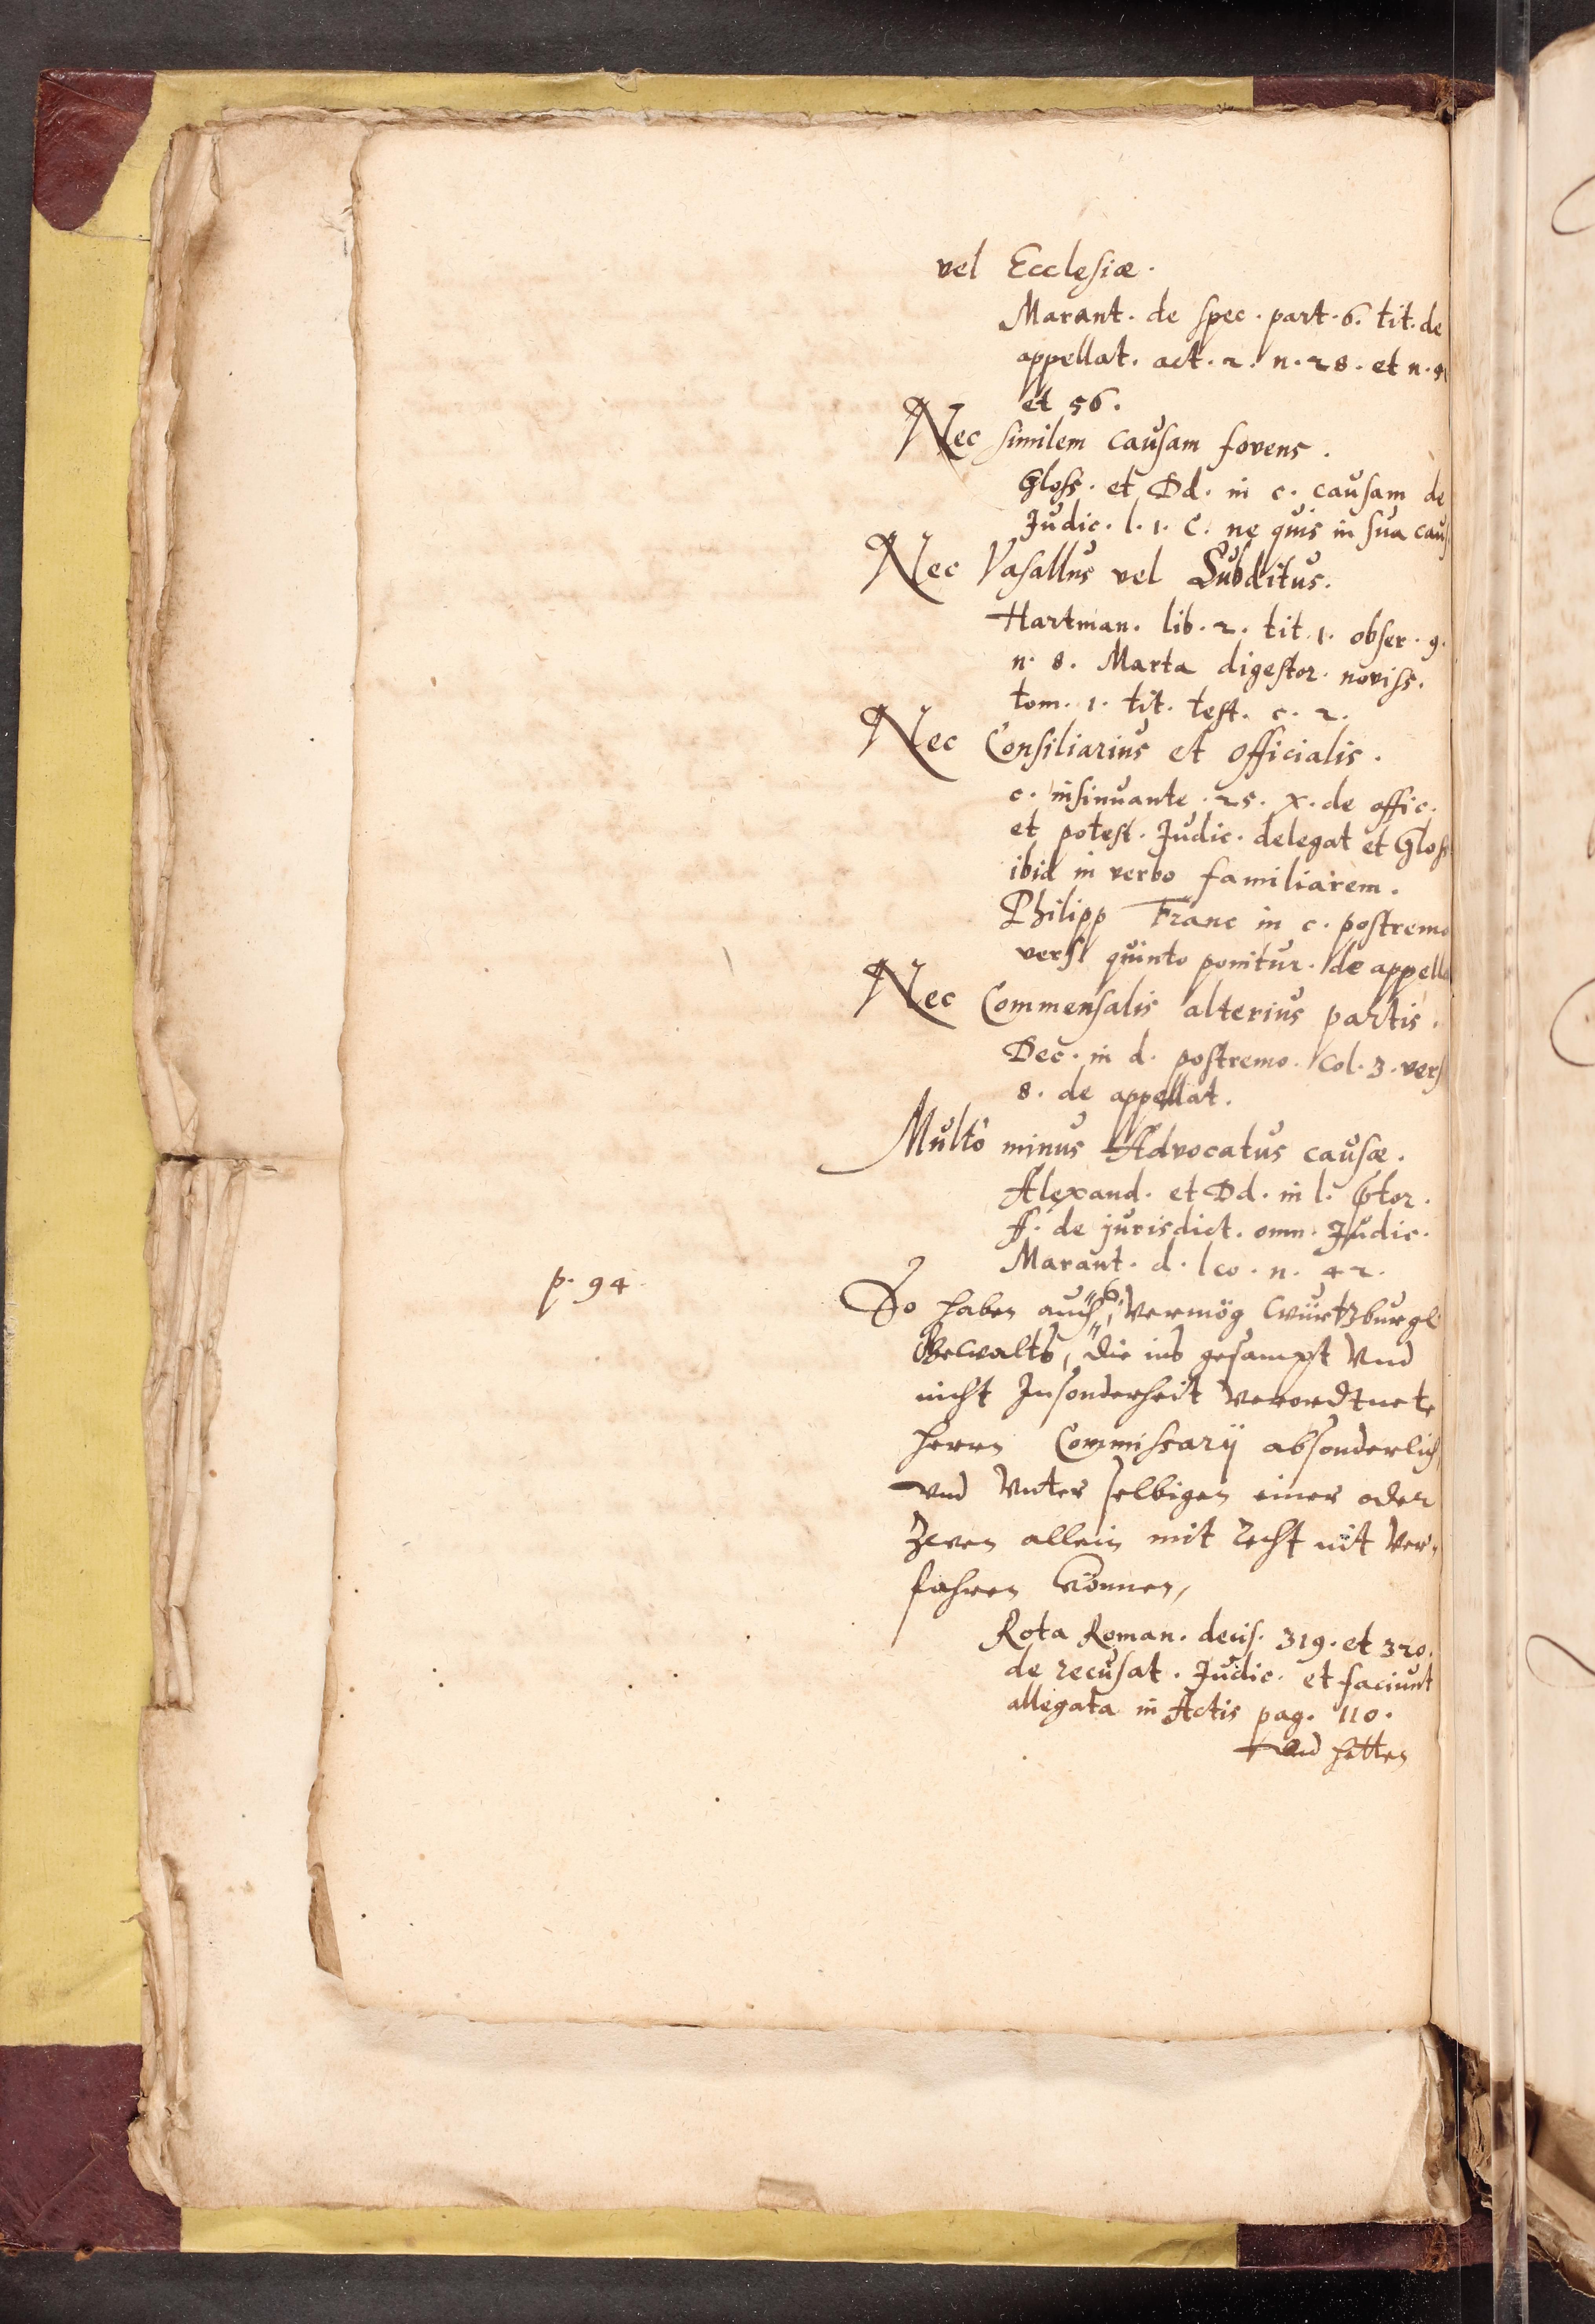 vel Ecclesiæ.
Marant. de spec. part. 6. tit. de
appellat. act. 2. n. 28. et n.
et 56.
Nec similem causam fovens.
Gloss. et Dd. in c. causam de
Judic. l. 1. C. ne quis in sua caus
Nec Vasallus vel Subditus.
Hartman. lib. 2. tit. 1. obser. 9.
n. 8. Marta digestor. noviss.
tom. 1. tit. test. c. 2.
Nec Consiliarius et officialis.
c. insinuante. 25. X. de offic.
et potest. Judic. delegat et Gloss
ibid in verbo familiarem.
Philipp Franc in c. postremo
vers. quinto ponitur. de appella
Nec Commensalis alterius partis.
Dec. in d. postremo. Col. 3. vers
8. de appellat.
Multò minus Advocatus causæ.
Alexand. et Dd. in l.
ff. de jurisdict. omn. Judic.
Marant. d. lco. n. 42.
p. 94.
So haben auch, Vermög Würtzburgl
Gewalts, die ins gesampt Vnd
nicht Insonderheit Verordtnete
herrn Commissarij absonderlich,
vnd Vnter selbigen einer oder
Zwen allein mit recht nit Ver,
fahren können,
Rota Roman. decis. 319. et 320.
de recusat. Judic. et faciunt
allegata in Actis pag. 110.
Vnd hetten